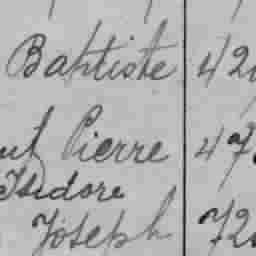 Baptiste 42
Pierre 47
Isidore
Joseph 72